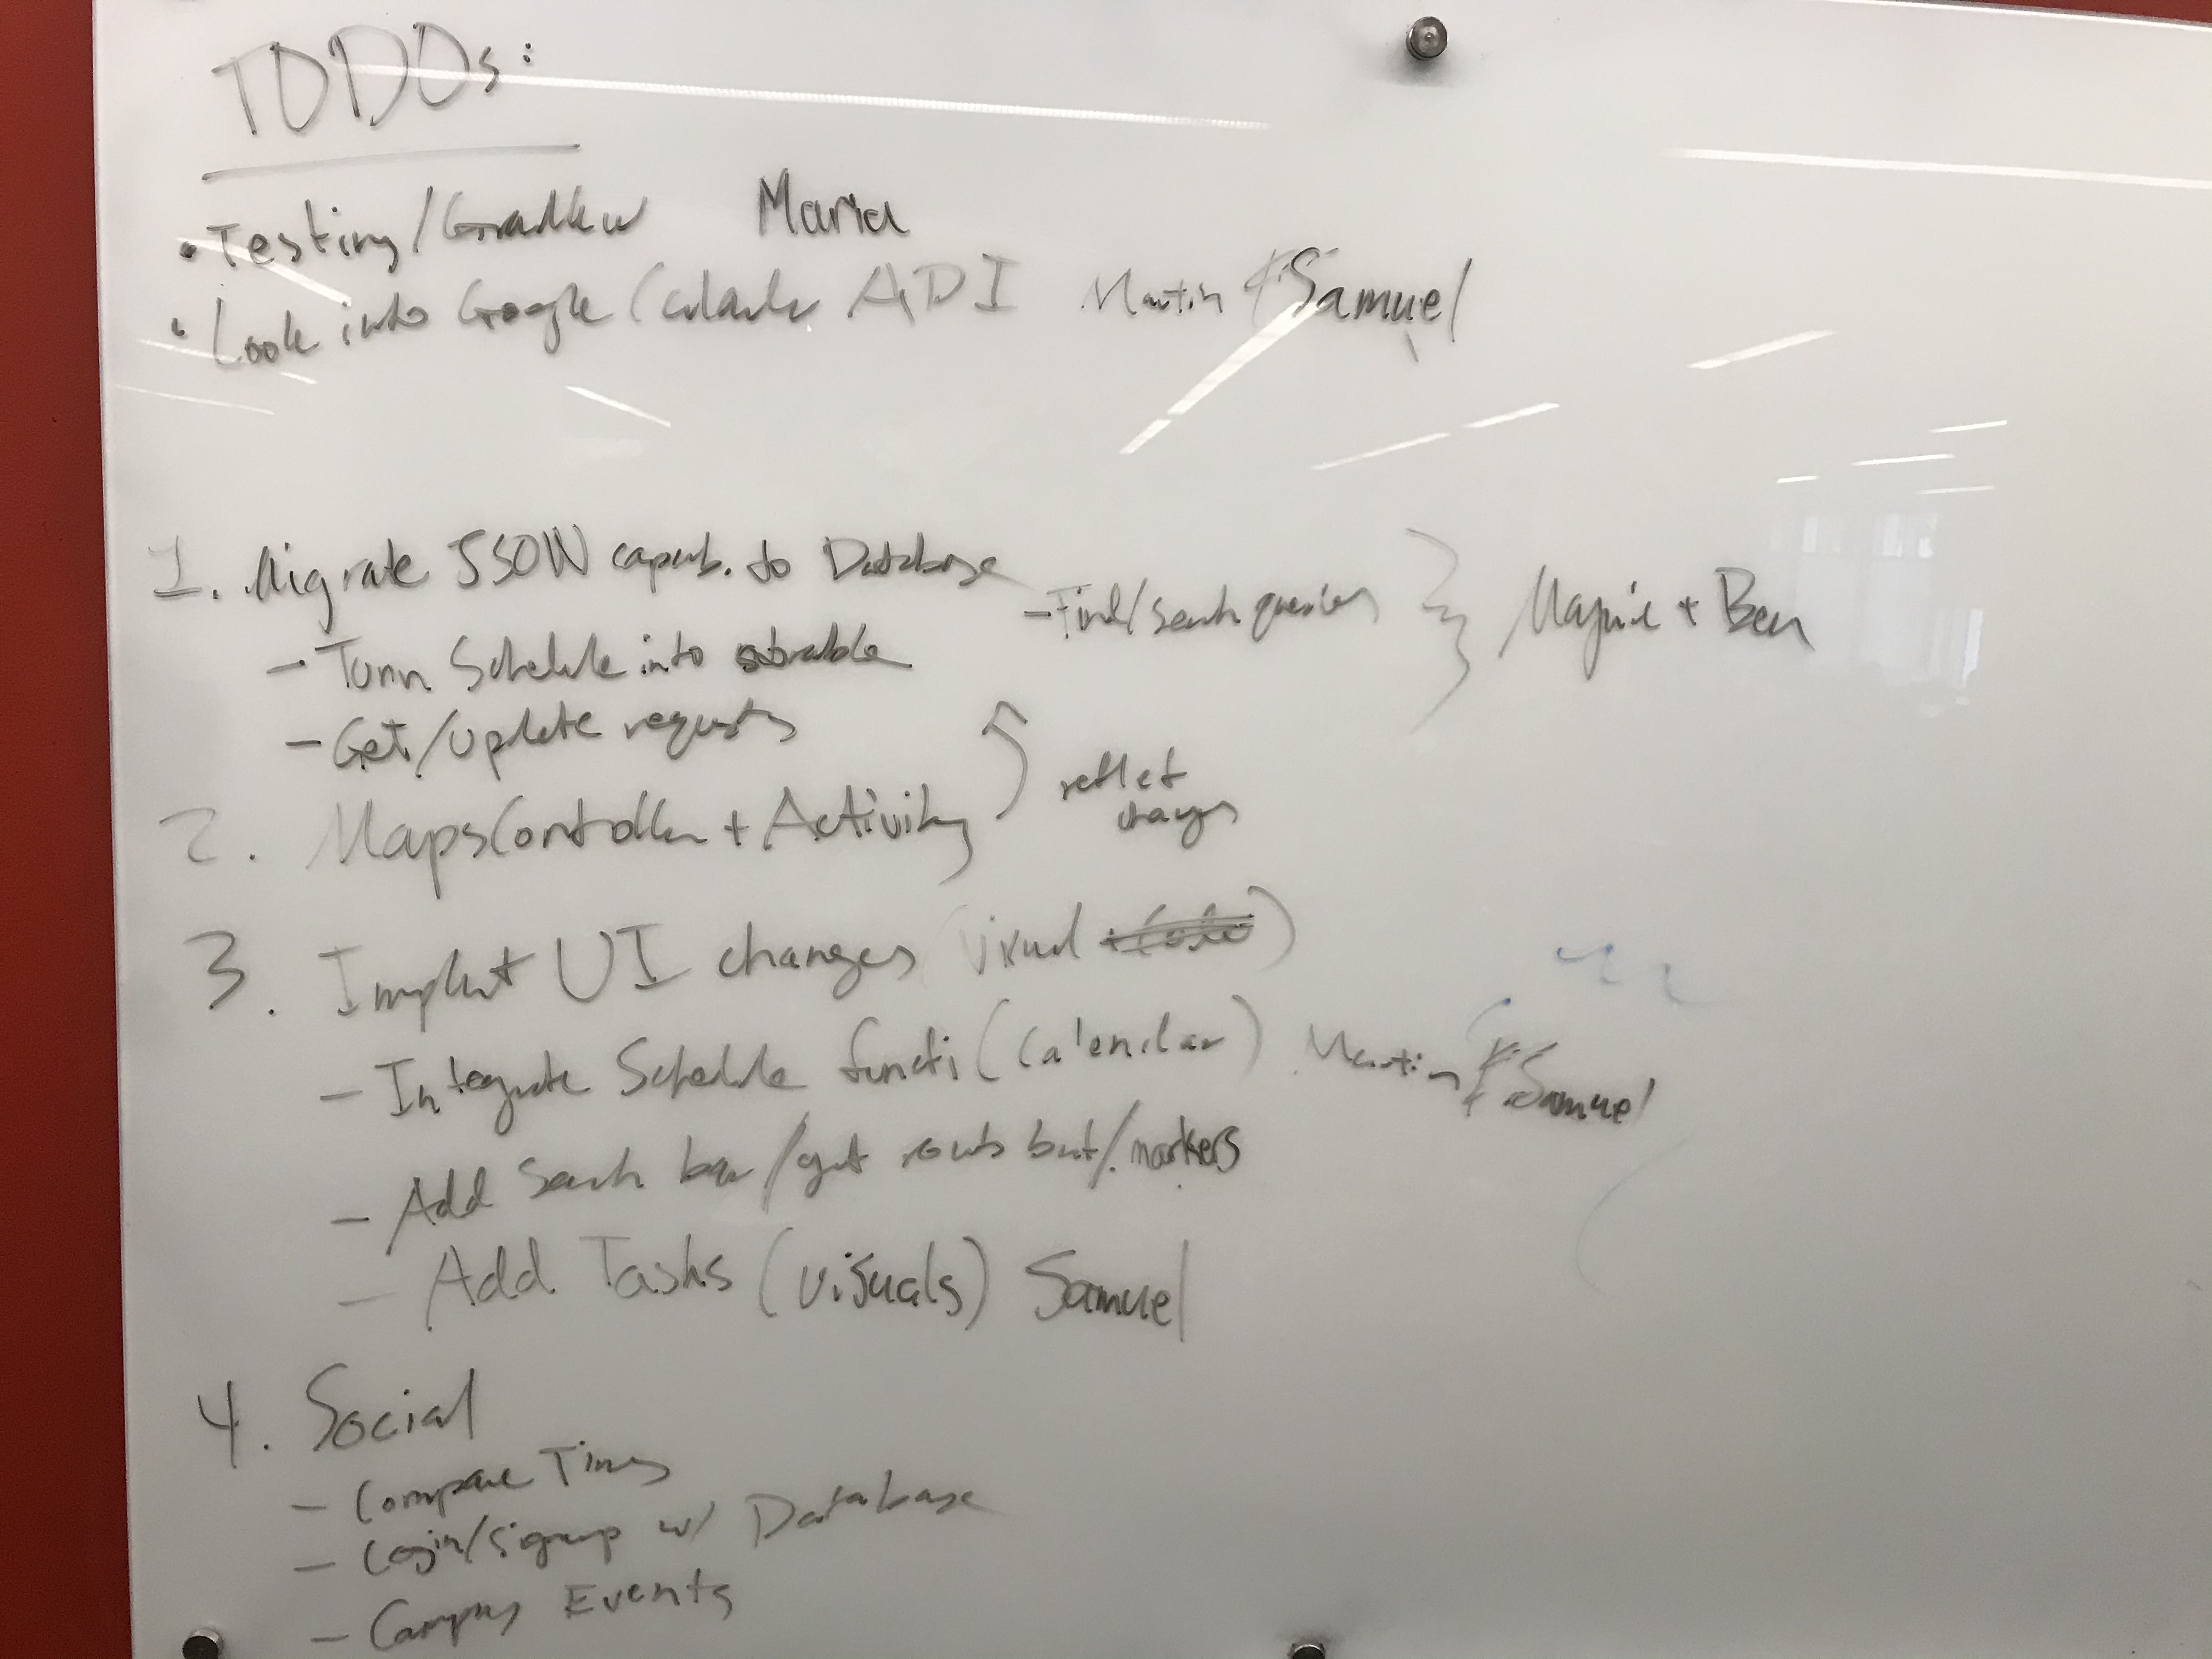 TODOs:
• Testing/Gradlew Maria
• Look into Google Calendar API Martin & Samuel
1. Migrate JSON capab. to Database
- Find/search queries
- Turn Schedule into
- Get/update requests
Ben
2. MapsController + Activity
reflect
changes
3. UI changes (visual)
- Integrate Schedule functi (Calendar) Martin & Samuel
- Add Search bar/get routs but/markers
- Add Tasks (visuals) Samuel
4. Social
- Compare Times
- Login/signup w/ Database
- Campus Events